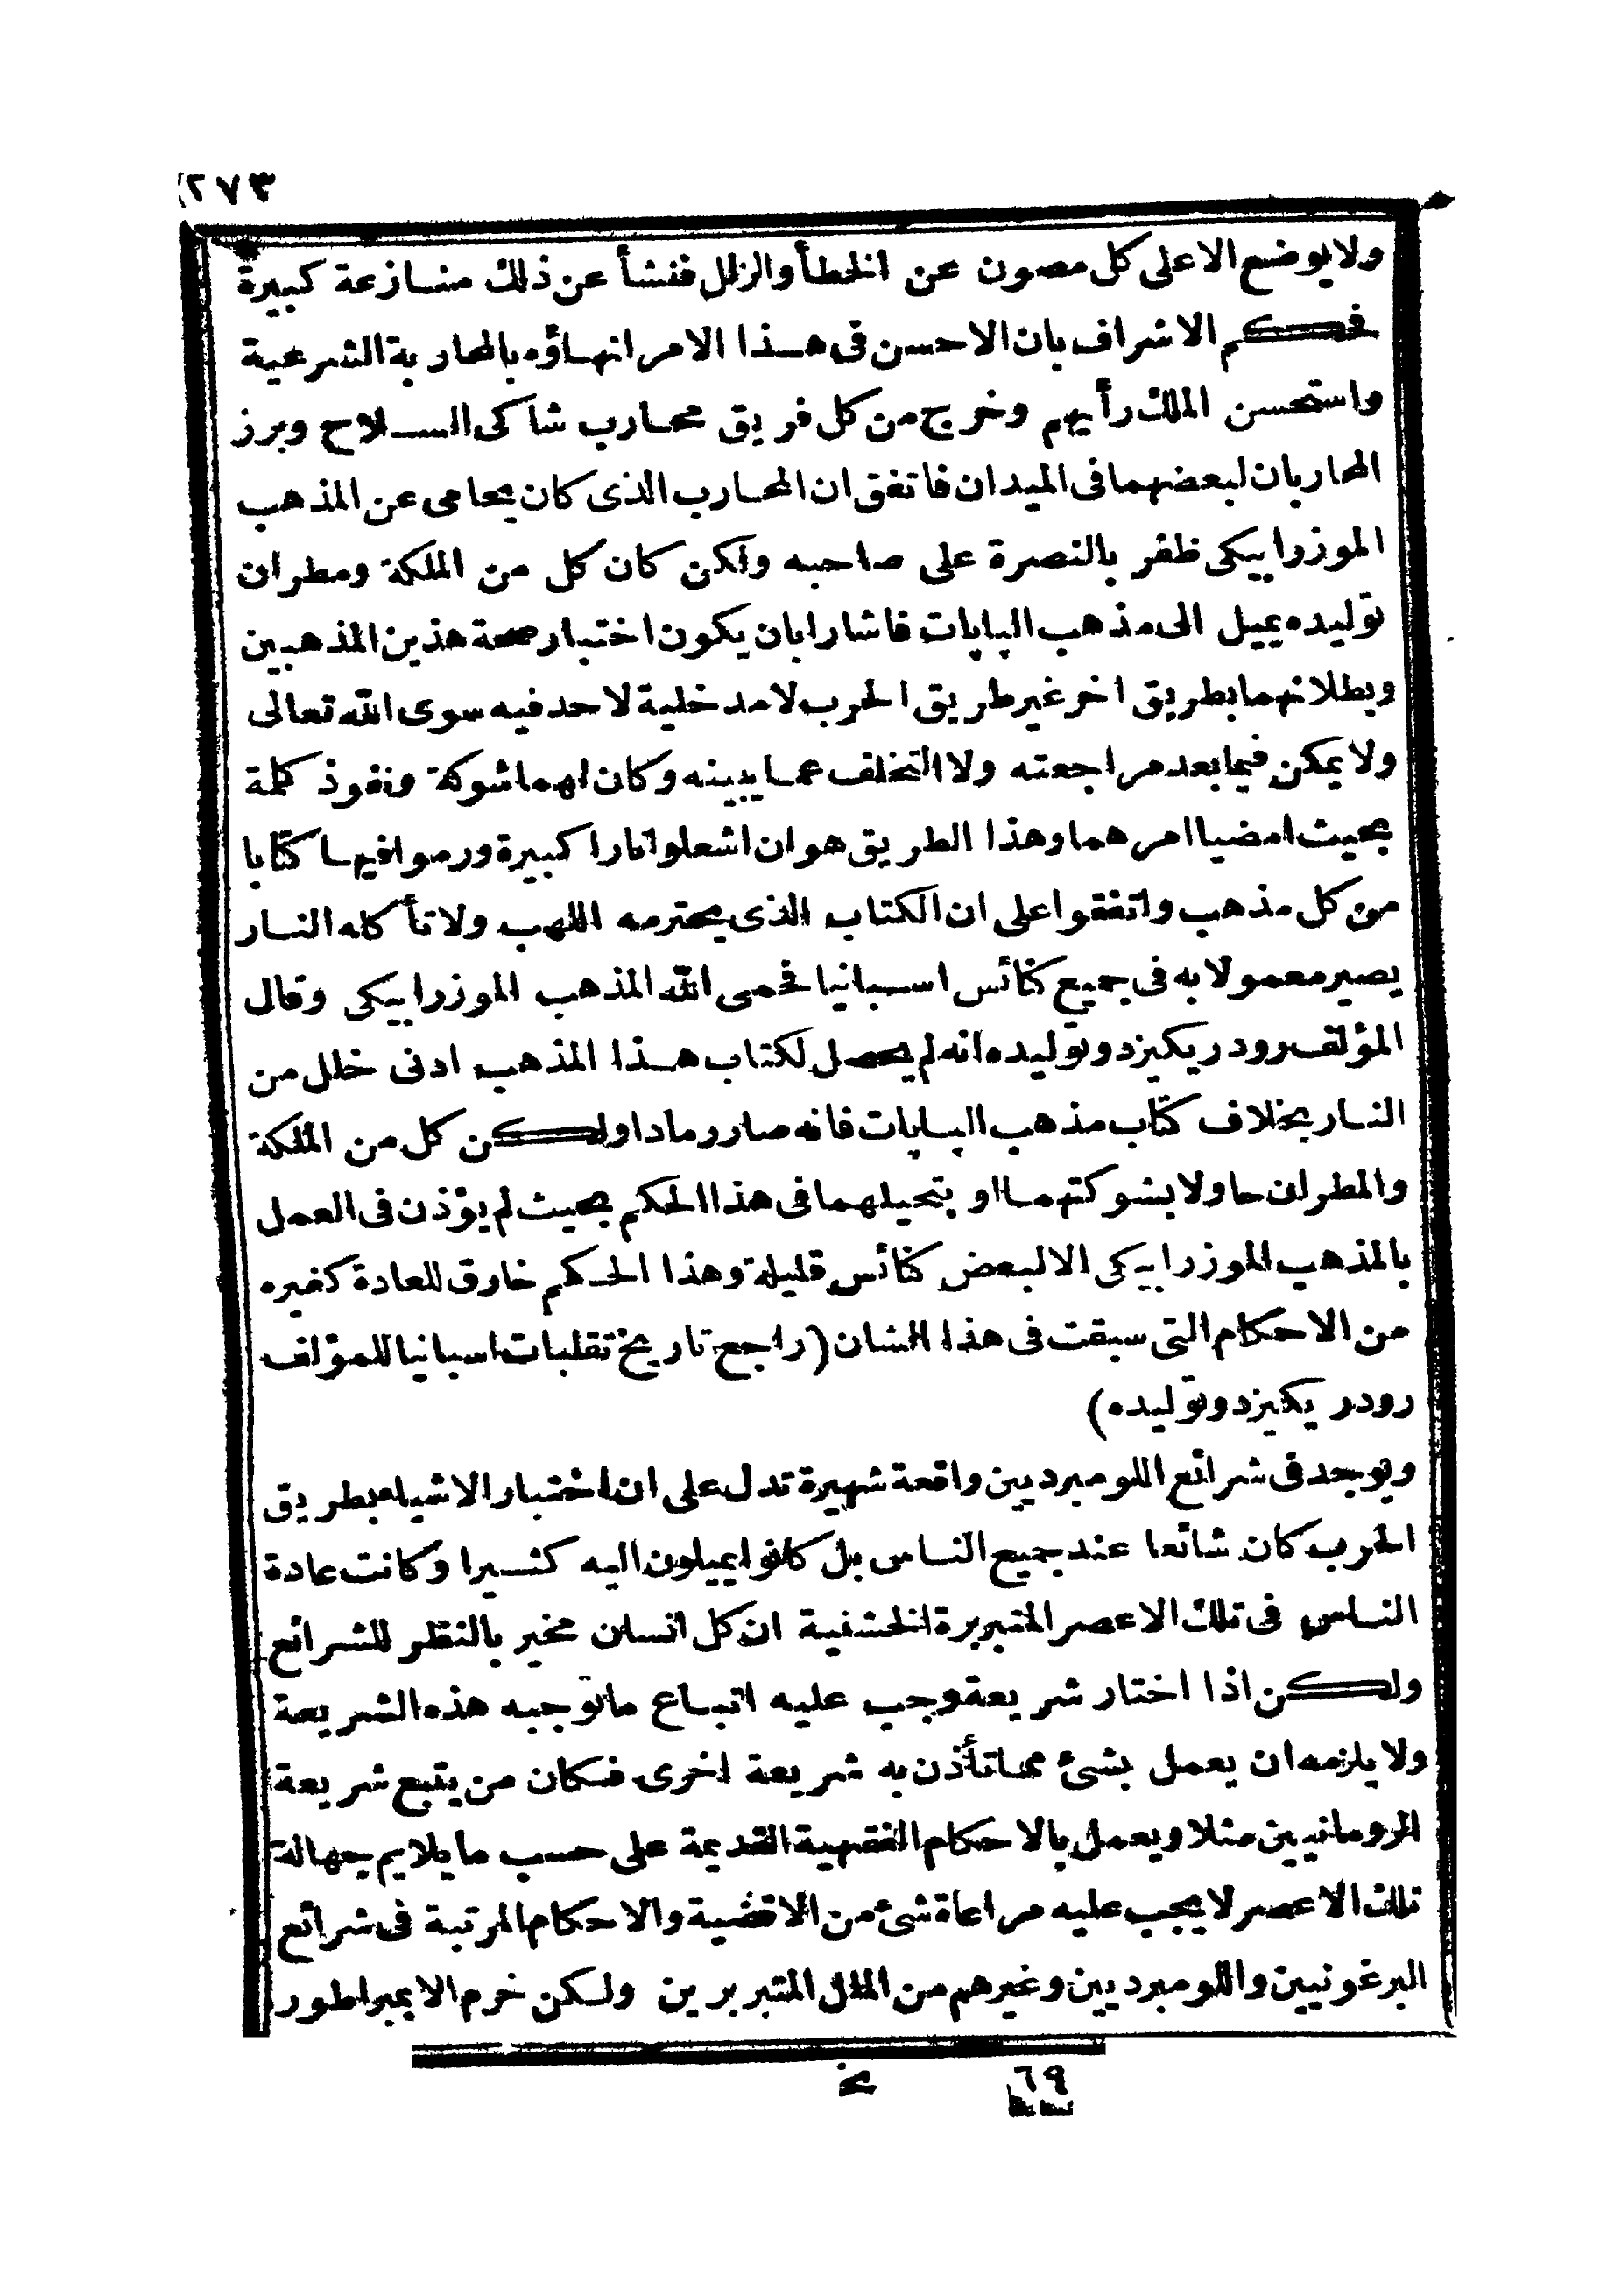 ٢٧٣
ولا يوضع الا على كل مصون عن الخطأ والزلل فنشأ عن ذلك منازعة كبيرة
فحكم الاشراف بان الاحسن فى هذا الامر انهاؤه بالمحاربة الشرعية
واستحسن الملك رأيهم وخرج من كل فريق محارب شاكى السلاح وبرز
المحاربان لبعضهما فى الميدان فاتفق ان المحارب الذى كان يحامى عن المذهب
الموزرابيكى ظفر بالنصرة على صاحبه ولكن كان كل من الملكة ومطران
توليده يميل الى مذهب الپاپات فاشارا بان يكون اختبار صحة هذين المذهبين
وبطلانهما بطريق اخر غير طريق الحرب لا مدخلية لاحد فيه سوى الله تعالى
ولا يمكن فيما بعد مراجعته ولا التخلف عما يبينه وكان لهما شوكة ونفوذ كلمة
بحيث امضيا امرهما وهذا الطريق هو ان اشعلوا نارا كبيرة ورموا فيها كتابا
من كل مذهب واتفقوا على ان الكتاب الذى يحترمه اللهب ولا تأكله النار
يصير معمولا به فى جميع كنائس اسبانيا فحمى الله المذهب الموزرابيكى وقال
المؤلف رودريكيز دو توليده انه لم يحصل لكتاب هذا المذهب ادنى خلل من
النار بخلاف كتاب مذهب الپاپات فانه صار رمادا ولكن كل من الملكة
والمطران حاولا بشوكتهما او بتحيلهما فى هذا الحكم بحيث لم يؤذن فى العمل
بالمذهب الموزرابيكى الا لبعض كنائس قليلة وهذا الحكم خارق للعادة كغيره
من الاحكام التى سبقت فى هذا الشان (راجع تاريخ تقلبات اسبانيا للمؤلف
رودريكيز دو توليده)
ويوجد فى شرائع اللومبرديين واقعة شهيرة تدل على ان اختبار الاشياء بطريق
الحرب كان شائعا عند جميع الناس بل كانوا يميلون اليه كثيرا وكانت عادة
الناس فى تلك الاعصر المتبربرة الخشنية ان كل انسان مخير بالنظر للشرائع
ولكن اذا اختار شريعة وجب عليه اتباع ما توجبه هذه الشريعة
ولا يلزمه ان يعمل بشئ مما تأذن به شريعة اخرى فكان من يتبع شريعة
الرومانيين مثلا ويعمل بالاحكام الفقهية القديمة على حسب ما يلايم جهالة
تلك الاعصر لا يجب عليه مراعاة شئ من الاقضية والاحكام المرتبة فى شرائع
البرغونيين واللومبرديين وغيرهم من الملل المتبربرين ولكن خرم الايمبراطور
٦٩ يخ